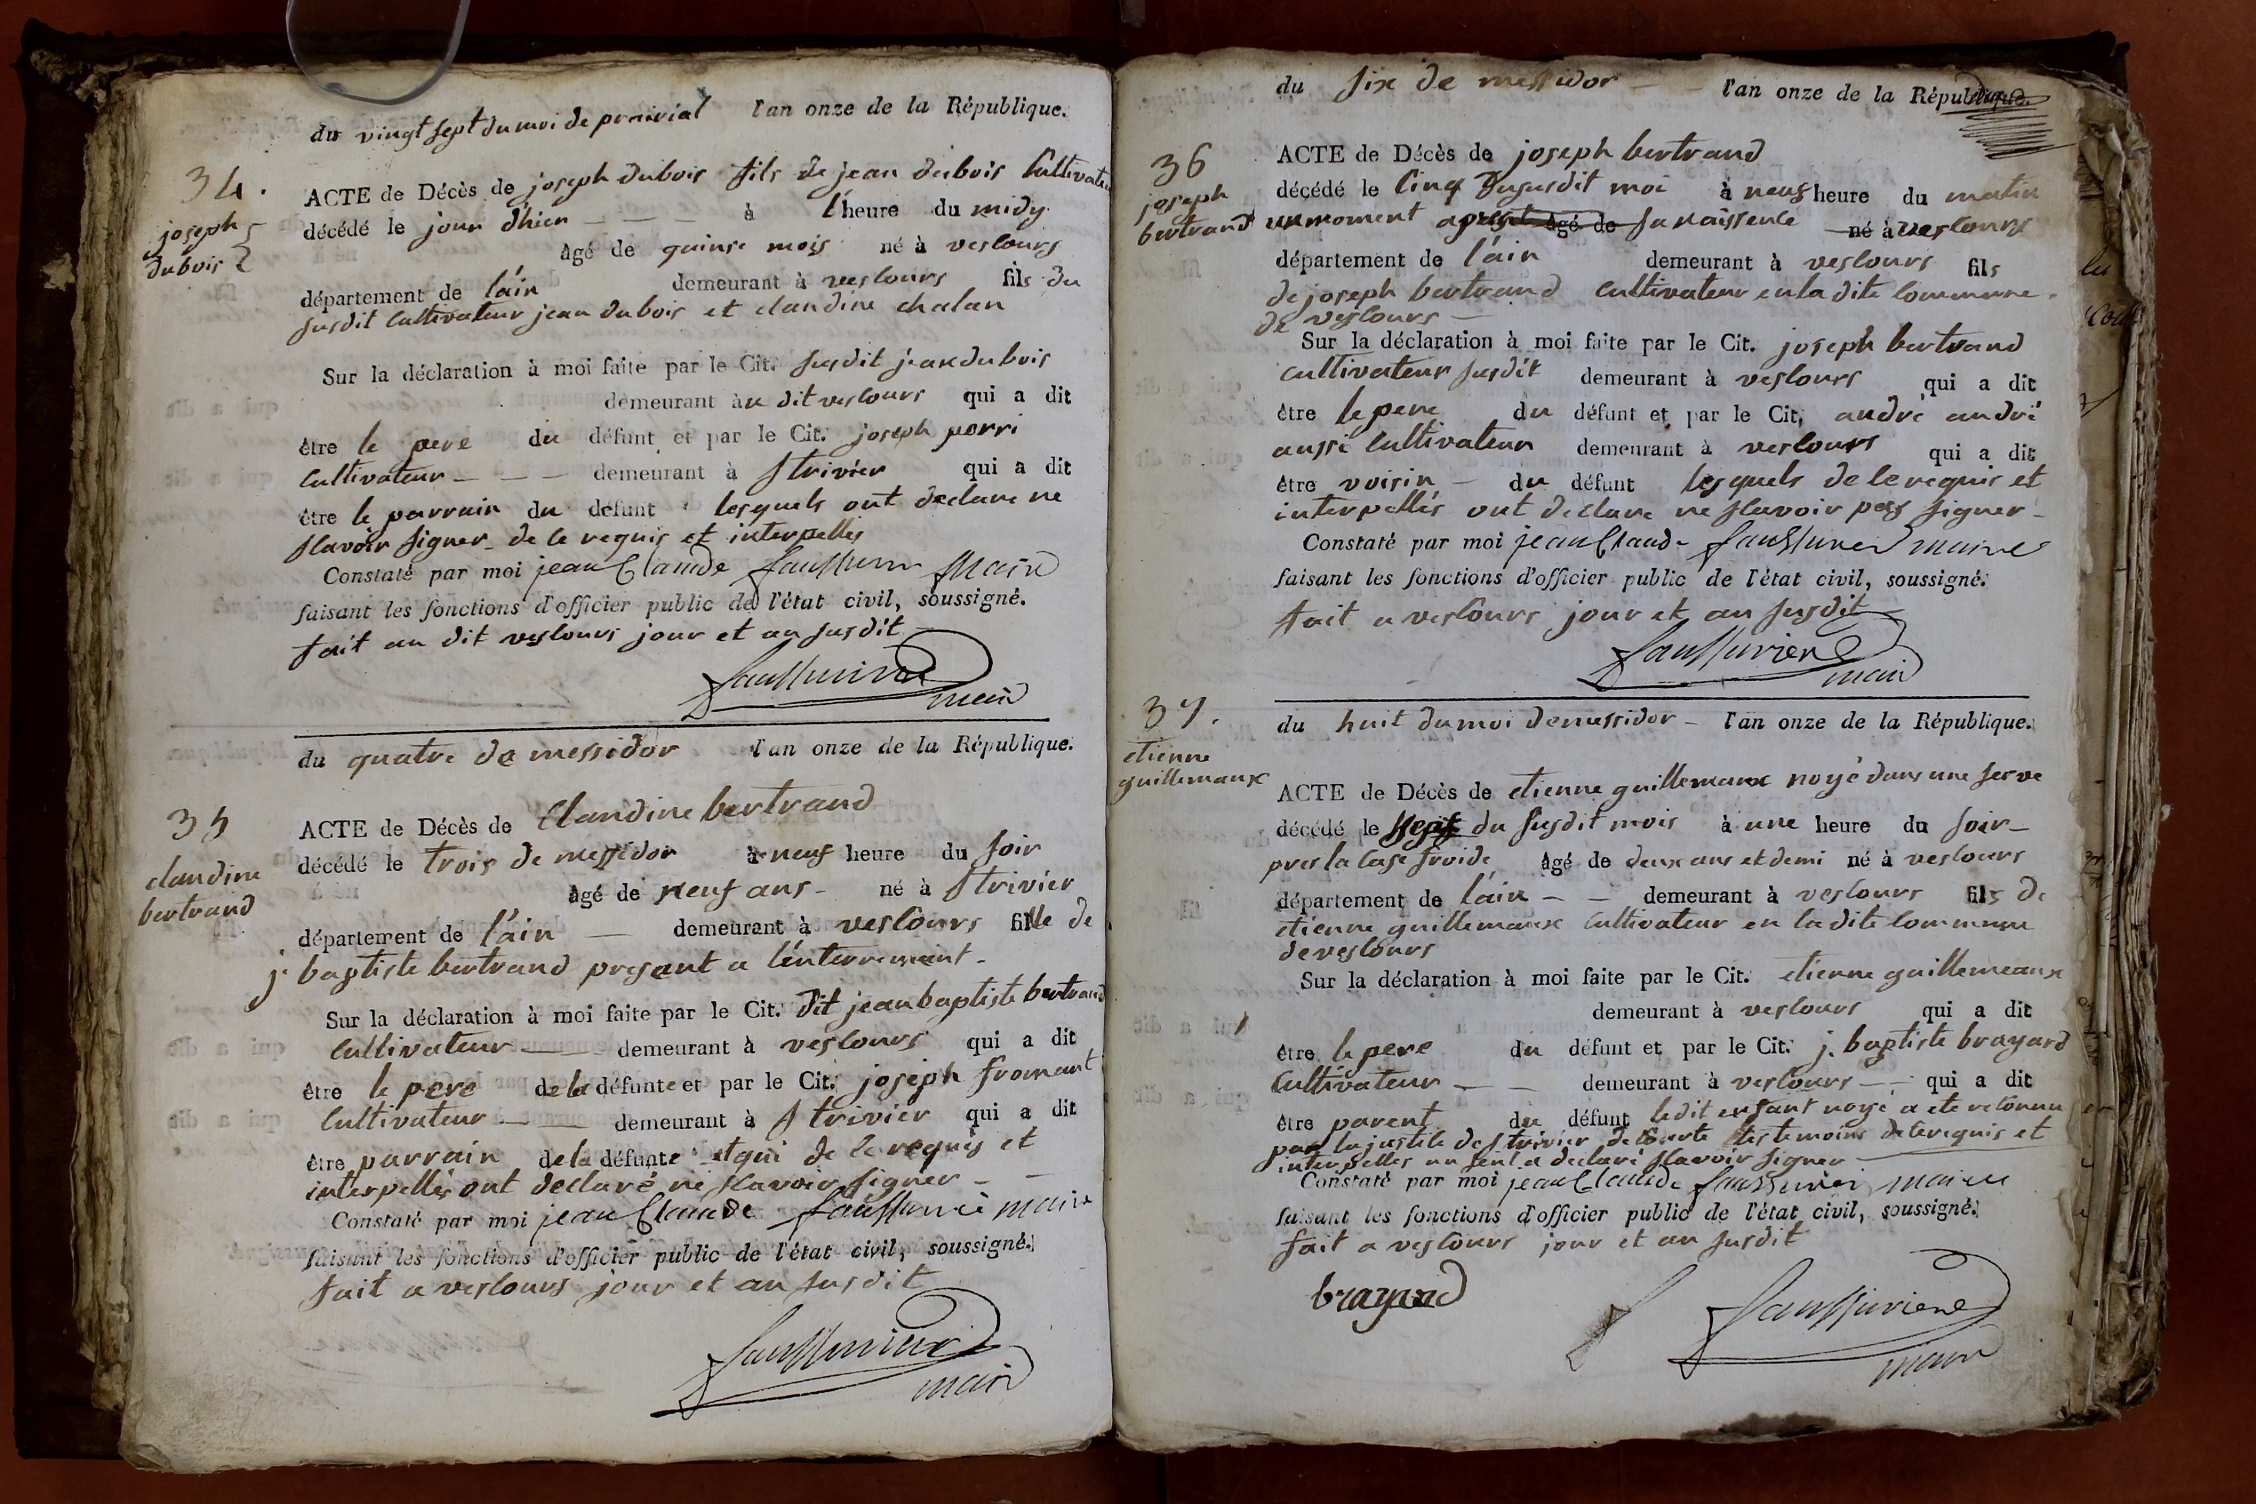 du vingt sept du moi de prairial l'an onze de la République.
34.
joseph
dubois
ACTE de Décès de joseph dubois fils de jean dubois Cultivateur
décédé le jour d'hier à l'heure du midy
âgé de quinse mois né à veslours
département de l'ain demeurant à veslours fils du
susdit Cultivateur jean dubois et claudine chalan
Sur la déclaration à moi faite par le Cit. susdit jean dubois
demeurant à u dit veslours qui a dit
être le pere du défunt et par le Cit. joseph perri
Cultivateur demeurant à Strivier qui a dit
être le parrain du défunt lesquels ont declare ne
slavoir signer de le requis et interpellés
Constaté par moi jean Claude Maire
faisant les fonctions d'officier public de l'état civil, soussigné.
fait au dit veslours jour et an susdit
du quatre de messidor l'an onze de la République.
35
claudine
bertrand
ACTE de Décès de Claudine bertrand
décédé le trois de messidor à neuf heure du soir
âgé de neuf ans né à Strivier
département de l'ain demeurant à veslours fille de
j. baptiste bertrand presant a l'enterrement
Sur la déclaration à moi faite par le Cit. dit jean baptiste bertrand
Cultivateur demeurant à veslours qui a dit
être le pere de la défunte et par le Cit. joseph fromant
Cultivateur demeurant à Strivier qui a dit
être parrain de la défunte et qui de le requis et
interpellés ont declaré ne slavoir signer
Constaté par moi jean Claude maire
faisant les fonctions d'officier public de l'état civil, soussigné.
fait a veslours jour et an susdit
du six de messidor l'an onze de la République.
36
joseph
bertrand
ACTE de Décès de joseph bertrand
décédé le cinq du susdit moi à neuf heure du matin
un moment apres âgé de sa naissence né à veslours
département de l'ain demeurant à veslours fils
de joseph bertrand Cultivateur en la dite Commune
de veslours
Sur la déclaration à moi faite par le Cit. joseph bertrand
Cultivateur susdit demeurant à veslours qui a dit
être le pere du défunt et par le Cit. andré andré
aussi Cultivateur demeurant à veslours qui a dit
être voisin du défunt lesquels de le requis et
interpellés ont declare ne slavoir pas signer
Constaté par moi jean Claude maire
faisant les fonctions d'officier public de l'état civil, soussigné.
fait a veslours jour et an susdit
37.
etienne
guillemaux
du huit du moi de messidor l'an onze de la République.
ACTE de Décès de etienne guillemaux noyé dans une serve
décédé le sept du susdit mois à une heure du soir
pres la case froide âgé de deux ans et demi né à veslours
département de l'ain demeurant à veslours fils de
etienne guillemaux Cultivateur en la dite Commune
de veslours
Sur la déclaration à moi faite par le Cit. etienne guillemeaux
demeurant à veslours qui a dit
être le pere du défunt et par le Cit. j. baptiste brayard
Cultivateur demeurant à veslours qui a dit
être parent du défunt ledit enfant noyé a ete reconnu
par la justile de Strivier de Courte les temoins de le requis et
interpelles un seul a declaré slavoir signer
Constaté par moi jean Claude maire
faisant les fonctions d'officier public de l'état civil, soussigné.
fait a veslours jour et an susdit
brayard